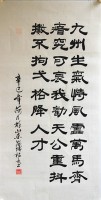 九州生氣恃風雷萬馬齊
瘖究可哀我勸天公重抖
擻不拘弌格降人才